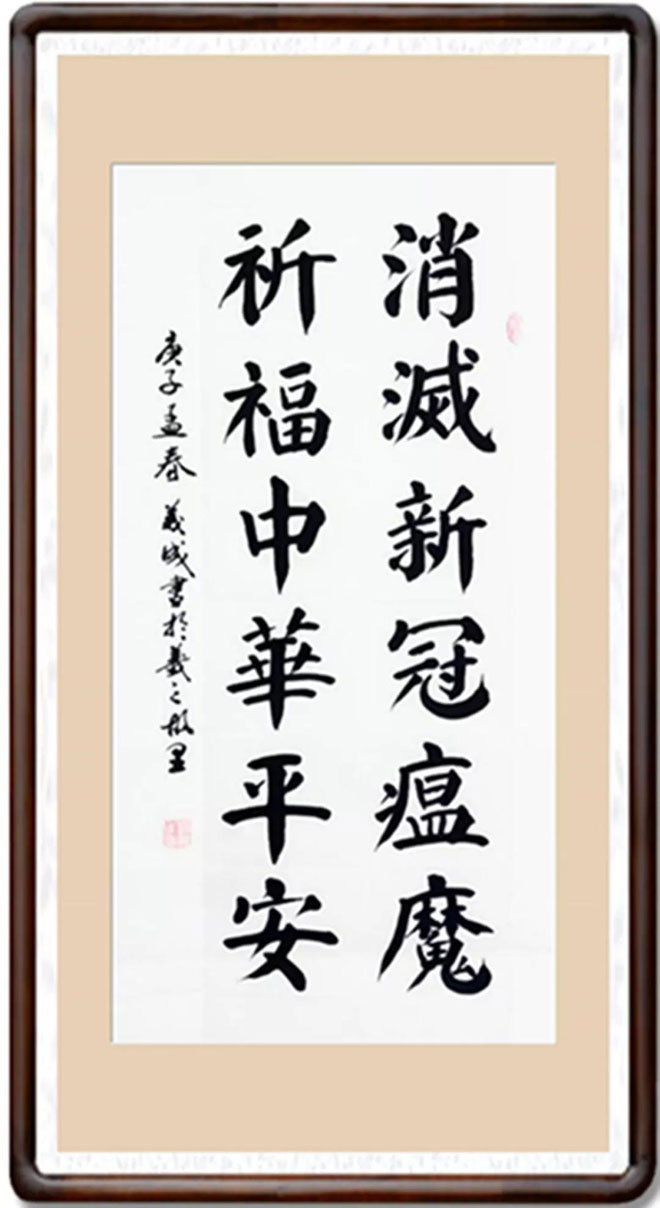 消滅新冠瘟魔
祈福中華平安
庚子孟春 義成書於羲之故里